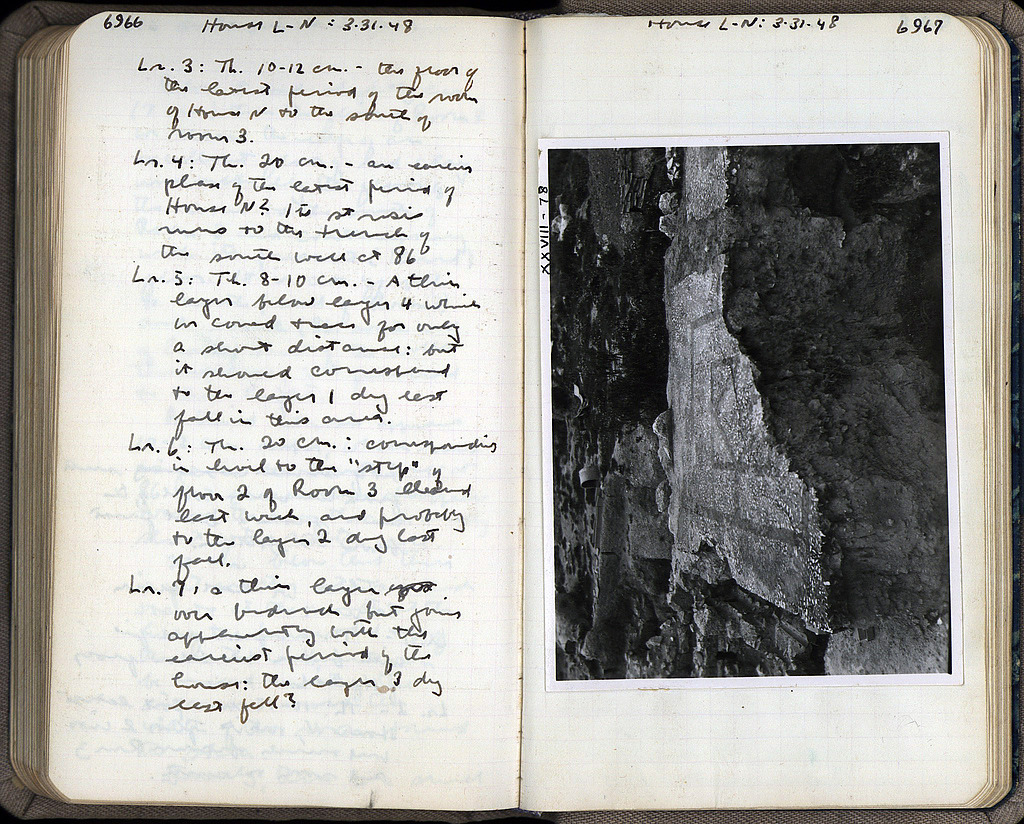 6966 House L-N : 3-31-48
Lr. 3: Th. 10-12 cm. - the floor of
the latest period of the room
of House N to the south of
room 3.
Lr. 4: Th. 20 cm. - an earlier
phase of the latest period of
House N? Its strosis
runs to the trench of
the south wall at 86
Lr. 5: Th. 8-10 cm. - A thin
layer below layer 4 which
we could trace for only
a short distance: but
it should correspond
to the layer 1 dug last
fall in this area.
Lr. 6: Th. 20 cm.: corresponding
in level to the "step" of
floor 2 of Room 3 cleared
last week, and probably
to the layer 2 dug last
fall.
Lr. 7: a thin layer
over bedrock but joins
apparently with the
earliest period of the
house: the layer 3 dug
last fall?
House L-N: 3-31-48 6967
XXVIII-78